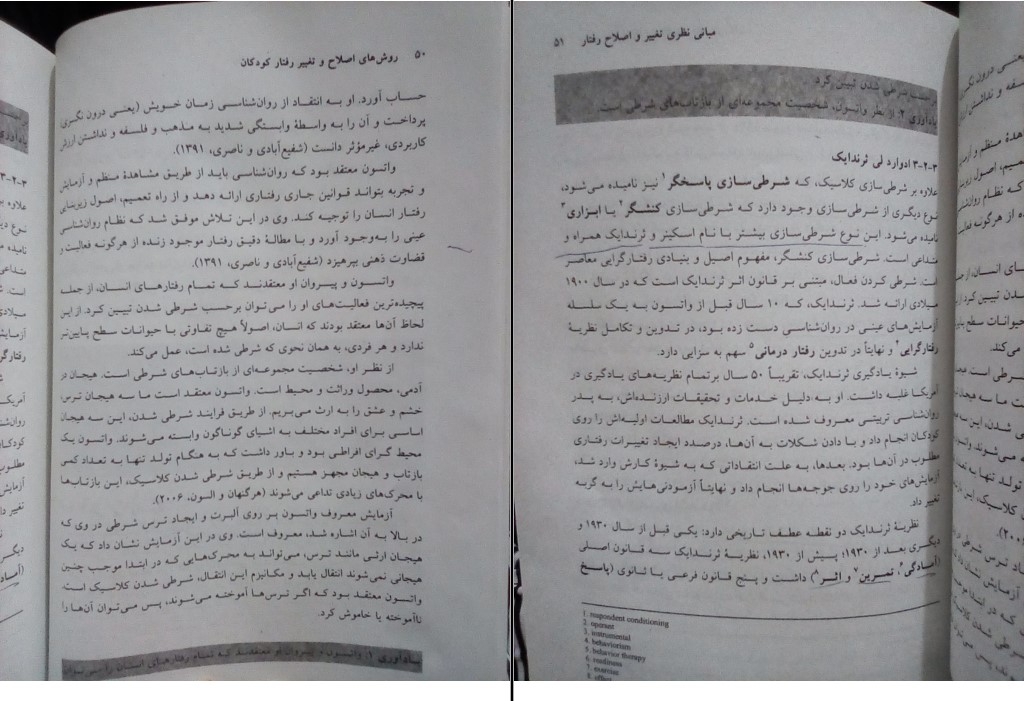 ۵۰ روش‌های اصلاح و تغییر رفتار کودکان
حساب آورد. او به انتقاد از روان‌شناسی زمان خویش (یعنی درون نگری)
پرداخت و آن را به واسطهٔ وابستگی شدید به مذهب و فلسفه و نداشتن ارزش
کاربردی، غیرمؤثر دانست (شفیع‌آبادی و ناصری، ۱۳۹۱).
واتسون معتقد بود که روان‌شناسی باید از طریق مشاهدهٔ منظم و آزمایش
و تجربه بتواند قوانین جاری رفتاری ارائه دهد و از راه تعمیم، اصول زیربنایی
رفتار انسان را توجیه کند. وی در این تلاش موفق شد که نظام روان‌شناسی
عینی را به‌وجود آورد و با مطالهٔ دقیق رفتار موجود زنده از هرگونه فعالیت و
قضاوت ذهنی بپرهیزد (شفیع‌آبادی و ناصری، ۱۳۹۱).
واتسون و پیروان او معتقدند که تمام رفتارهای انسان، از جمله
پیچیده‌ترین فعالیت‌های او را می‌توان برحسب شرطی شدن تبیین کرد. از این
لحاظ آن‌ها معتقد بودند که انسان، اصولاً هیچ تفاوتی با حیوانات سطح پایین‌تر
ندارد و هر فردی، به همان نحوی که شرطی شده است، عمل می‌کند.
از نظر او، شخصیت مجموعه‌ای از بازتاب‌های شرطی است. هیجان در
آدمی، محصول وراثت و محیط است. واتسون معتقد است ما سه هیجان ترس،
خشم و عشق را به ارث می‌بریم. از طریق فرایند شرطی شدن، این سه هیجان
اساسی برای افراد مختلف به اشیای گوناگون وابسته می‌شوند. واتسون یک
محیط گرای افراطی بود و باور داشت که به هنگام تولد تنها به تعداد کمی
بازتاب و هیجان مجهز هستیم و از طریق شرطی شدن کلاسیک، این بازتاب‌ها
با محرک‌های زیادی تداعی می‌شوند (هرگنهان و السون، ۲۰۰۶).
آزمایش معروف واتسون بر روی آلبرت و ایجاد ترس شرطی در وی که
در بالا به آن اشاره شد، معروف است. وی در این آزمایش نشان داد که یک
هیجان ارثی مانند ترس، می‌تواند به محرک‌هایی که در ابتدا موجب چنین
هیجانی نمی‌شوند انتقال یابد و مکانیزم این انتقال، شرطی شدن کلاسیک است.
واتسون معتقد بود که اگر ترس‌ها آموخته می‌شوند، پس می‌توان آن‌ها را
ناآموخته یا خاموش کرد.
یادآوری ۱: واتسون و پیروان او معتقدند که تمام رفتارهای انسان را می‌توان
مبانی نظری تغییر و اصلاح رفتار ۵۱
شرطی شدن تبیین کرد.
یادآوری ۲: از نظر واتسون، شخصیت مجموعه‌ای از بازتاب‌های شرطی است.
۳-۲-۳ ادوارد لی ثرندایک
علاوه بر شرطی‌سازی کلاسیک، که شرطی‌سازی پاسخگر۱ نیز نامیده می‌شود،
نوع دیگری از شرطی‌سازی وجود دارد که شرطی‌سازی کنشگر۲ یا ابزاری۳
نامیده می‌شود. این نوع شرطی‌سازی بیشتر با نام اسکینر و ثرندایک همراه و
تداعی است. شرطی‌سازی کنشگر، مفهوم اصیل و بنیادی رفتارگرایی معاصر
است. شرطی کردن فعال، مبتنی بر قانون اثر ثرندایک است که در سال ۱۹۰۰
میلادی ارائه شد. ثرندایک، که ۱۰ سال قبل از واتسون به یک سلسله
آزمایش‌های عینی در روان‌شناسی دست زده بود، در تدوین و تکامل نظریهٔ
رفتارگرایی۴ و نهایتاً در تدوین رفتار درمانی۵ سهم به سزایی دارد.
شیوهٔ یادگیری ثرندایک، تقریباً ۵۰ سال برتمام نظریه‌های یادگیری در
آمریکا غلبه داشت. او به‌دلیل خدمات و تحقیقات ارزنده‌اش، به پدر
روان‌شناسی تربیتی معروف شده است. ثرندایک مطالعات اولیه‌اش را روی
کودکان انجام داد و با دادن شکلات به آن‌ها، درصدد ایجاد تغییرات رفتاری
مطلوب در آن‌ها بود. بعدها، به علت انتقاداتی که به شیوهٔ کارش وارد شد،
آزمایش‌های خود را روی جوجه‌ها انجام داد و نهایتاً آزمودنی‌هایش را به گربه
تغییر داد.
نظریهٔ ثرندایک دو نقطه عطف تاریخی دارد: یکی قبل از سال ۱۹۳۰ و
دیگری بعد از ۱۹۳۰؛ پیش از ۱۹۳۰، نظریهٔ ثرندایک سه قانون اصلی
(آمادگی۶، تمرین۷ و اثر۸) داشت و پنج قانون فرعی یا ثانوی (پاسخ
1. respondent conditioning
2. operant
3. instrumental
4. behaviorism
5. behavior therapy
6. readiness
7. exercise
8. effect